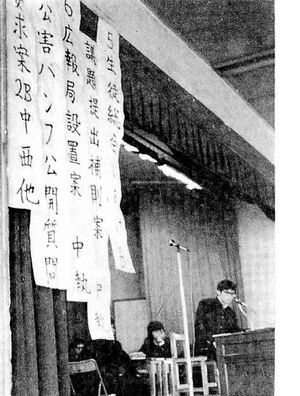 5生徒総会
議題提出補則案 中執
6広報局設置案 中執
公害パンフ公開質問
要求案2B中西他